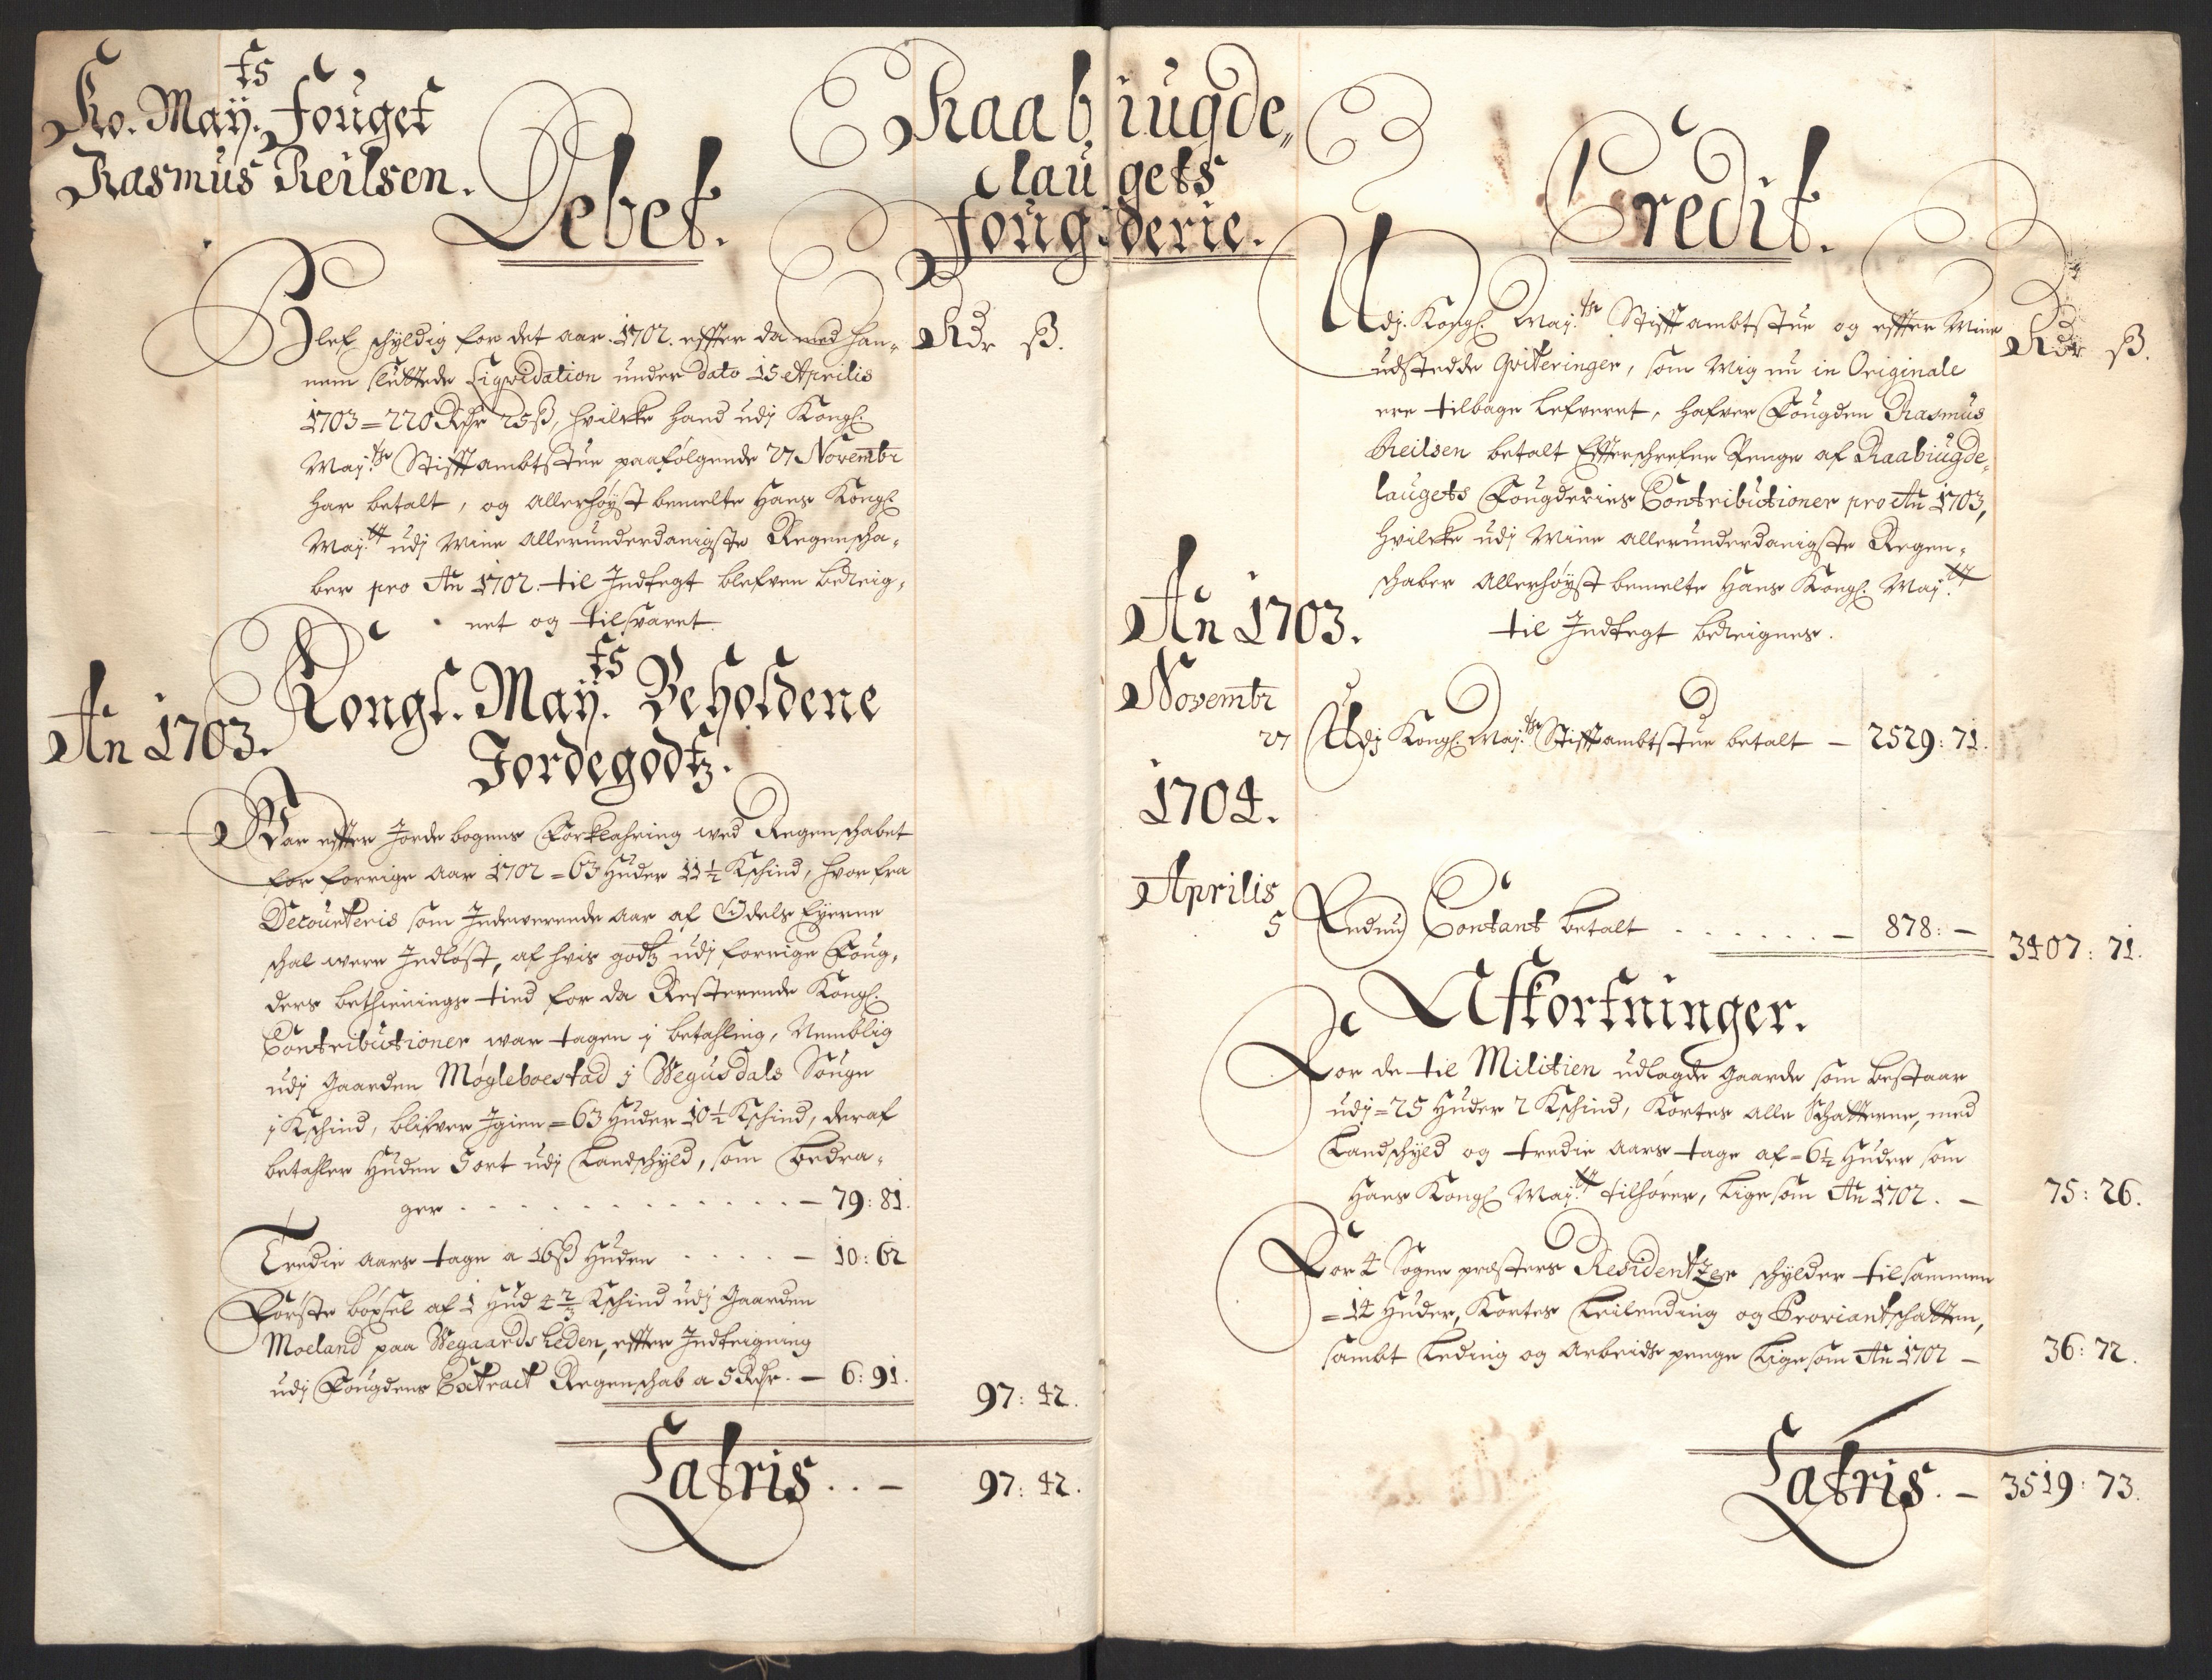 Ko. Maÿ.ts Fouget
Rasmus Reilsen.
Debet.
Raabiugde„
laugets
Fougderie.
Rdr ß.
Blef schyldig for det aar 1702. effter da med han„
nem sluttede Liqvidation under dato 15 Aprilis
1703 = 220 Rdr 25 ß, hvilcke hand udj Kongl.
Maj.ts Stifftambtstue paafølgende 27 Novembr
har betalt, og allerhøyst bemelte Hans Kongl
Maj.tt udj mine allerunderdanigste Regenscha„
ber pro An 1702. til Indtegt blefven bereig„
net og tilsvaret.
An 1703.
Kongl. Maÿ.ts Beholdene
Jordegodtz.
War effter Jordebogens Forklahring ved Regenschabet
for forrige aar 1702 = 63 Huder 11½ Kschind, hvorfra
Decourteris som Indewerende aar af Odels Eyerne
schal were Indløst, af hvis godtz udj forrige Foug„
ders bethienings tied for da Resterende Kongl.
Contributioner war tagen j betahling, Nemblig
udj gaarden Møgleboestad j Wegusdals Sougn
j Kschind, blifver Igien = 63 Huder 10½ Kschind, deraf
betahler Huden 5 ort udj Landschyld, som bedra„
ger . . . . . . . . . . — 79: 81.
Tredie aars tage a 16 ß Huden . . . . — 10: 62
Første böxsel af 1 Hud 4⅔ Kschind udj gaarden
Moeland paa Wegaardsheden, effter Indteigning
udj Fougdens Extract Regenschab a 5 Rdr. — 6: 91.
97: 42.
Latris . . — 97: 42.
Credit.
Rdr ß.
Udj Kongl. Maj.ts Stifftambtstue og effter mine
udstedde qviteringer, som mig nu in Originale
ere tilbage lefveret, hafver Fougden Rasmus
Reilsen betalt Effterschrefne Penge af Raabiugde„
laugets Fougderies Contributioner pro An 1703,
hvilcke udj mine allerunderdanigste Regen„
schaber allerhøyst bemelte Hans Kongl. Maj.tt
til Indtegt bereignes.
An 1703.
Novembr
27 Udj Kongl. Maj.ts Stifftambtstue betalt — 2529: 71.
1704.
Aprilis
5 Endnu Contant betalt . . . . . . — 878: —
3407: 71.
Afkortninger.
For de til Militien udlagde gaarde som bestaar
udj = 25 Huder 2 Kschind, Kortes alle Schatterne, med
Landschyld og tredie aars tage af = 6½ Huder som
Hans Kongl Maj.tt tilhører, Ligesom An 1702. — 75: 26.
For 4 Sogne præsters Residentzer schylder tilsammen
= 14 Huder, Kortes Leilending og Proviantschatten,
sambt Leding og arbeids penge Ligesom An 1702 — 36: 72.
Latris. — 3519: 73.